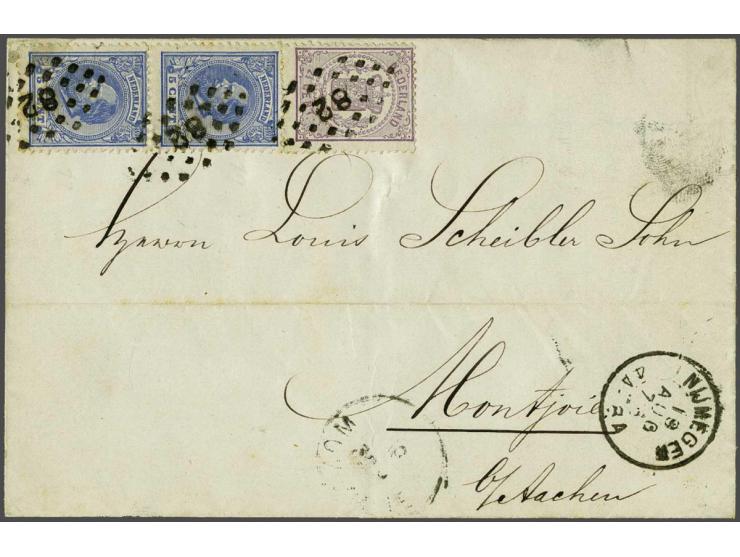 NEDERLAND
5 CENT
NEDERLAND
5 CENT
NEDERLAND
82
82
82
Herrn Louis Scheibler Sohn
Montjoie
b/Aachen
NIJMEGEN
AUG